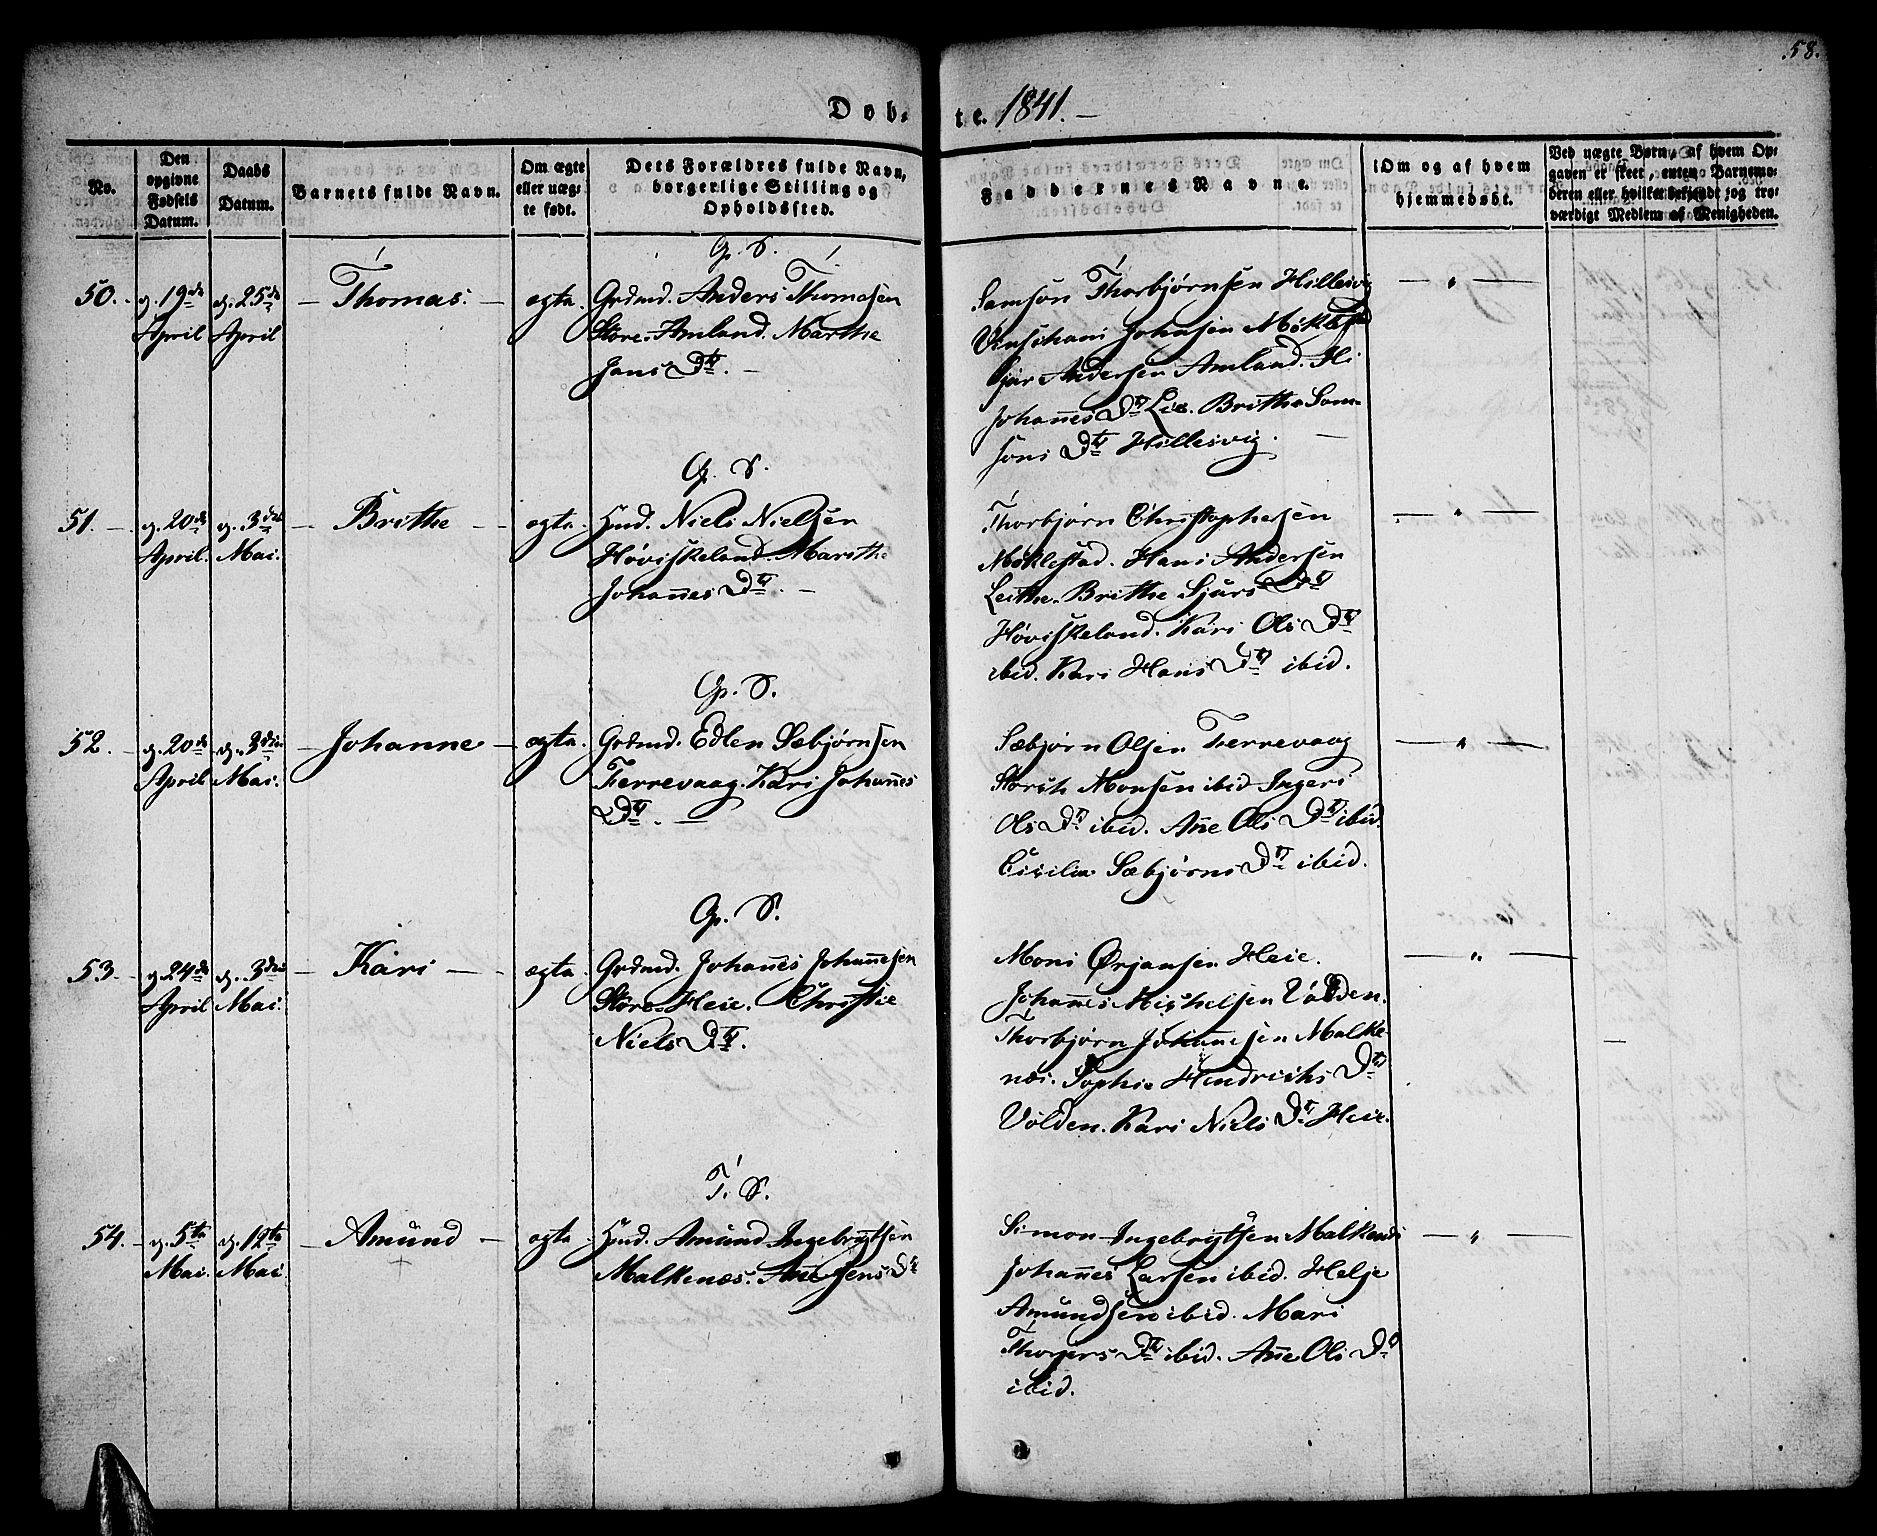 58.
Døb- te. 1841. -
No.
Den opgivne Fødsels Datum.
Daabs Datum.
Barnets fulde Navn.
Om ægte eller uæg- te født.
Dets Forældres fulde Navn, borgerlige Stilling og Opholdssted.
Faddernes Navne.
Om og af hvem hjemmedøbt.
Ved uægte Børn, af hvem Op- gaven er skeet, enten Barnemo- deren eller hvilket bekjendt og tro- værdigt Medlem af Menigheden.
G. S.
50. - d. 19de d. 25de - Thomas. - ægta. Grdmd. Anders Thomesen
April April Store-Amland. Marthe
Jans Dtr. -
Samson Thorbjørnsen Hillesvig
Johnsen Møklestad
Sjur Andersen Amland.
Johannes Dtr Lie. Brithe Sam-
sons Dtr Hillesvig. -
- " -
G. S.
51. - d. 20de d. 3die - Brithe - ægta. Hmd. Niels Nielsen
April. Mai. Høviskeland. Marithe
Johannes Dtr. -
Thorbjørn Christophersen
Møklestad. Hans Andersen
Leithe. Brithe Sjurs Dtr
Høviskeland. Kari Ols Dtr
ibid. Kari Hans Dtr ibid.
- " -
G. S.
52. - d. 20de d. 3die - Johanne - ægta. Grdmd. Edlen Sæbjørnsen
April Mai. Færrevaag. Kari Johannes
Dtr. -
Sæbjørn Olsen Færrevaag
Monsen ibid Ingeri
Ols Dtr ibid. Anne Ols Dtr ibid.
Cicilia Sæbjørns Dtr ibid.
- " -
G. S.
53. - d. 24de d. 3die - Kari - ægta. Grdmd. Johannes Johannesen
April Mai. Store-Heie. Christie
Niels Dtr.
Mons Ørjansen Heie.
Johannes Michelsen Volden.
Thorbjørn Johannesen Malke-
næs. Sophie Hendrichs Dtr
Volden. Kari Niels Dtr Heie.
- " -
T. S.
54. - d. 5te d. 12te - Amund - ægta. Hmd. Amund Ingebrygtsen
Mai. Mai. Malkenæs. Anne Jens Dtr
Simon Ingebrygtsen Malkenæs
Johannes Larsen ibid. Helje
Amundsen ibid. Mari
Thorgers Dtr ibid. Anne Ols Dtr
ibid.
- " -